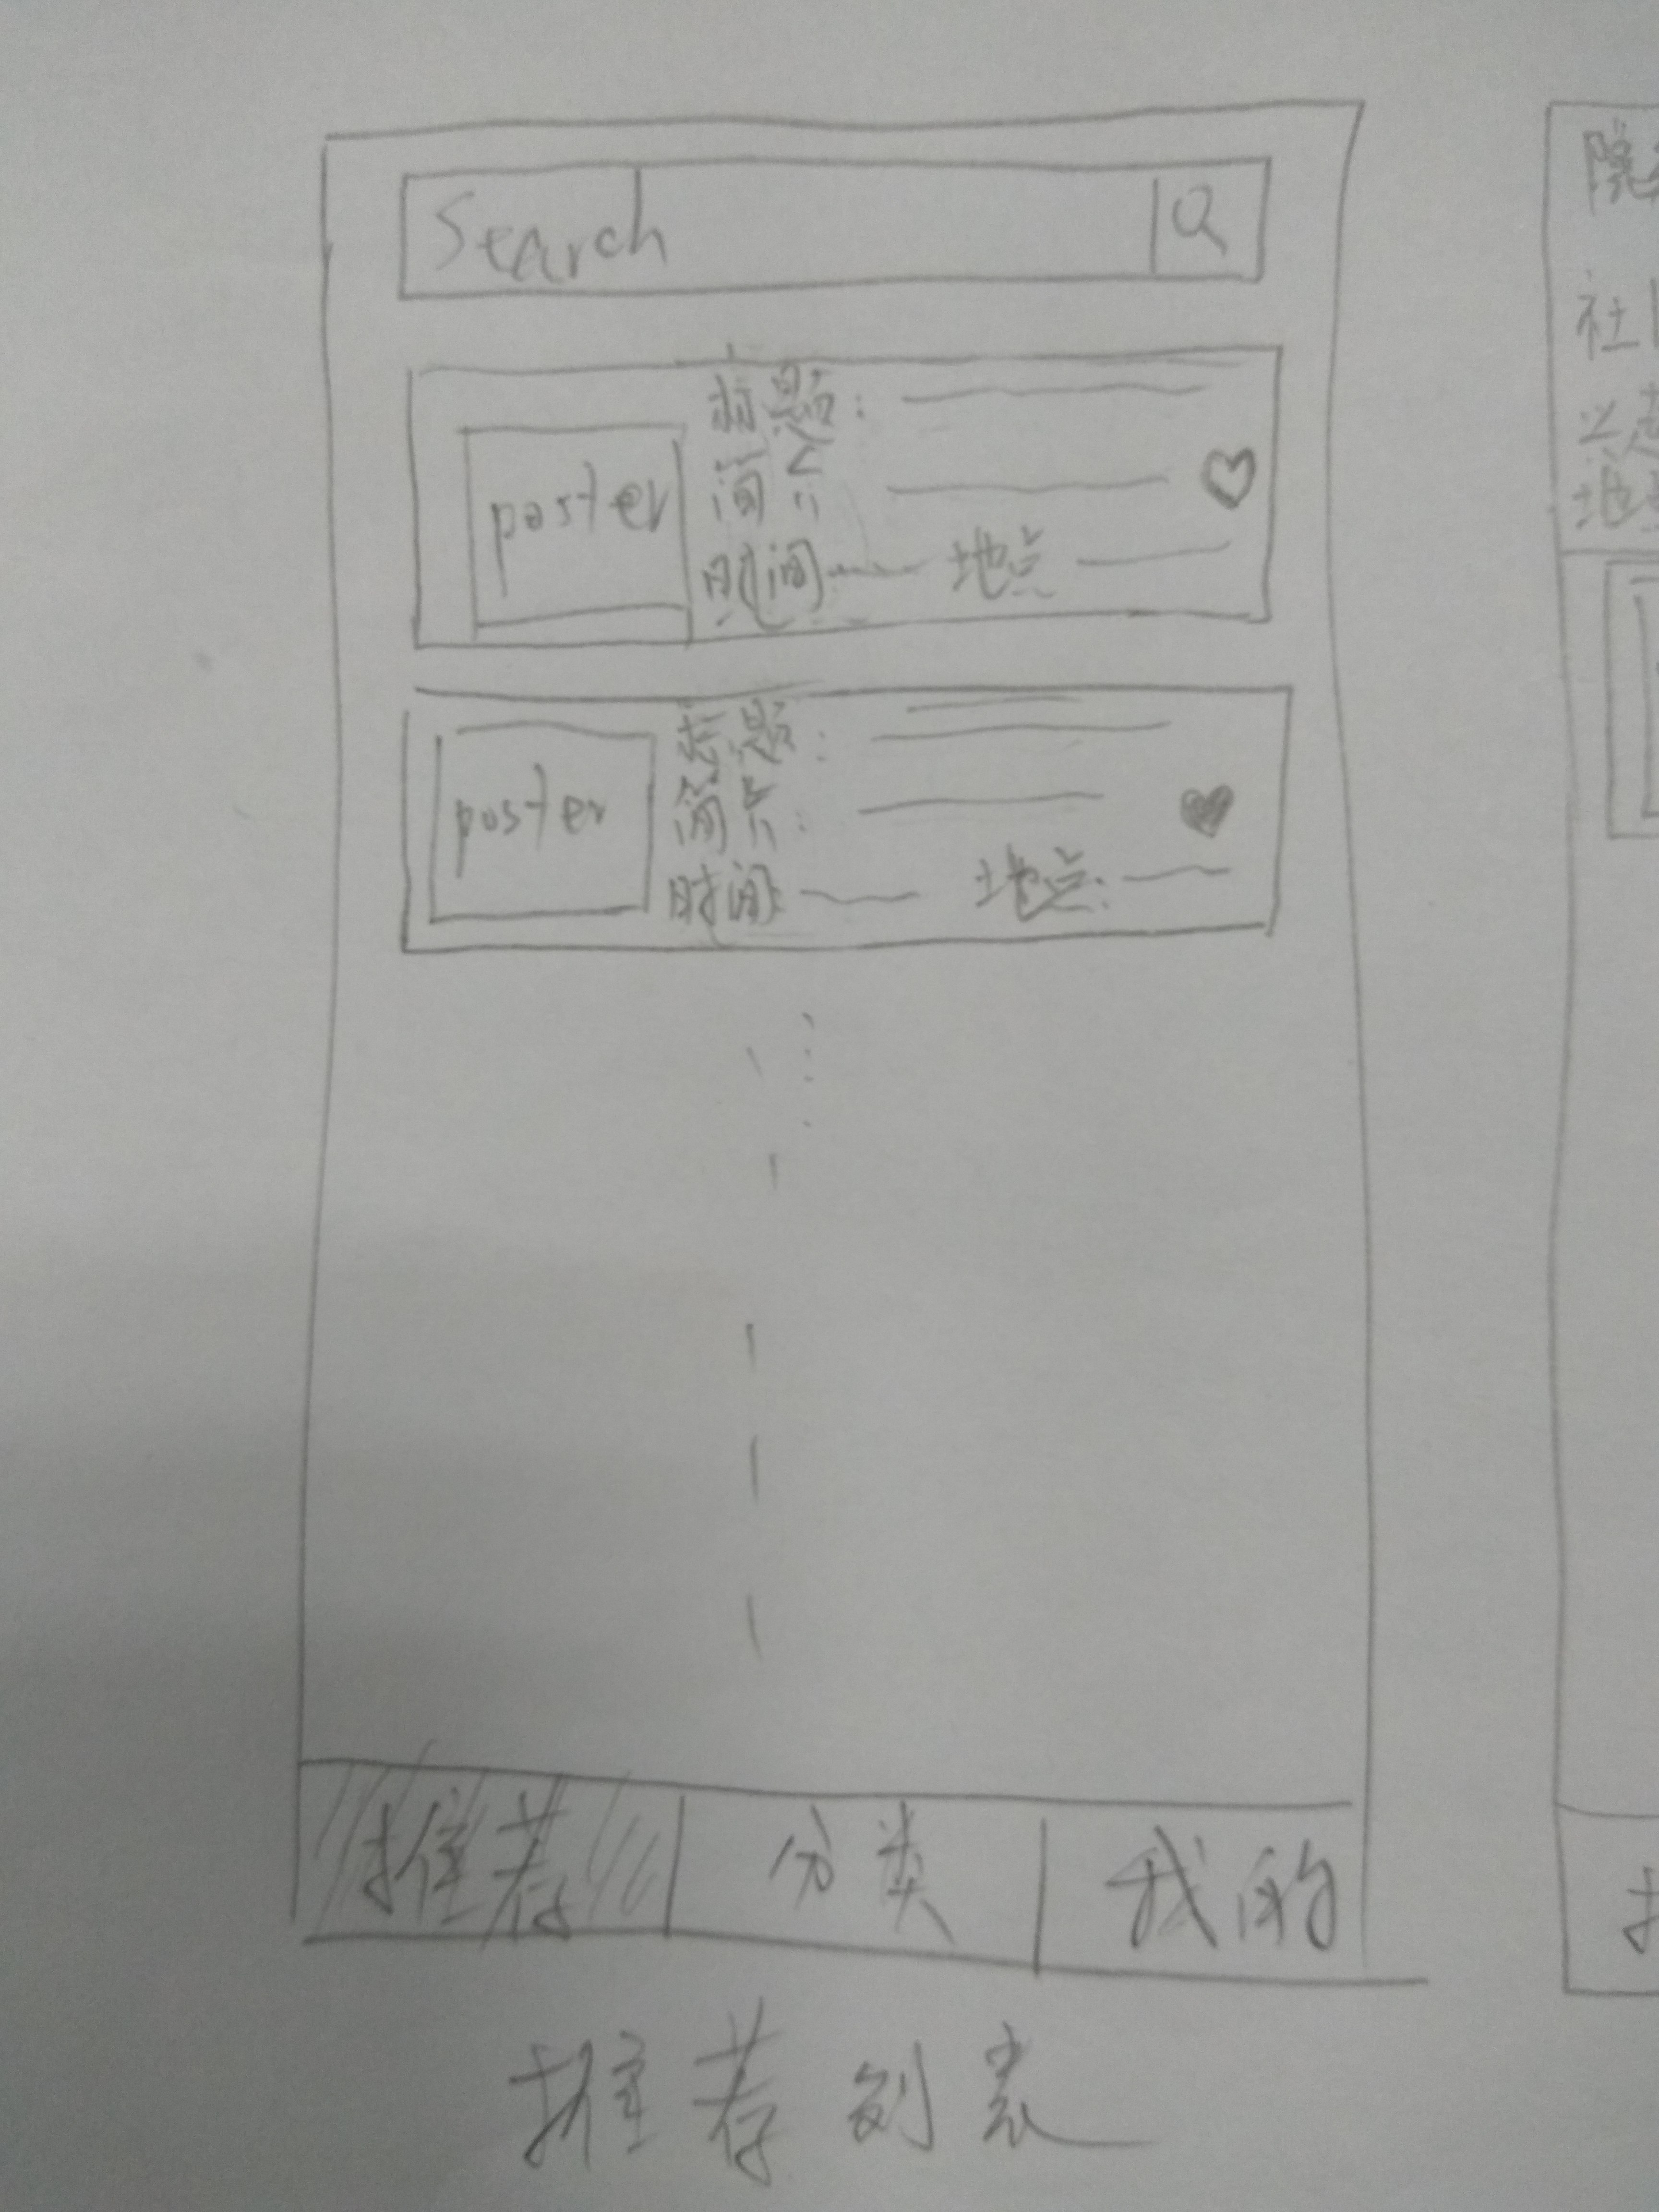 Search
poster
标题:
简介
时间 地点
poster
标题:
简介:
时间: 地点:
推荐 分类 我的
推荐列表
院
社
兴趣
地